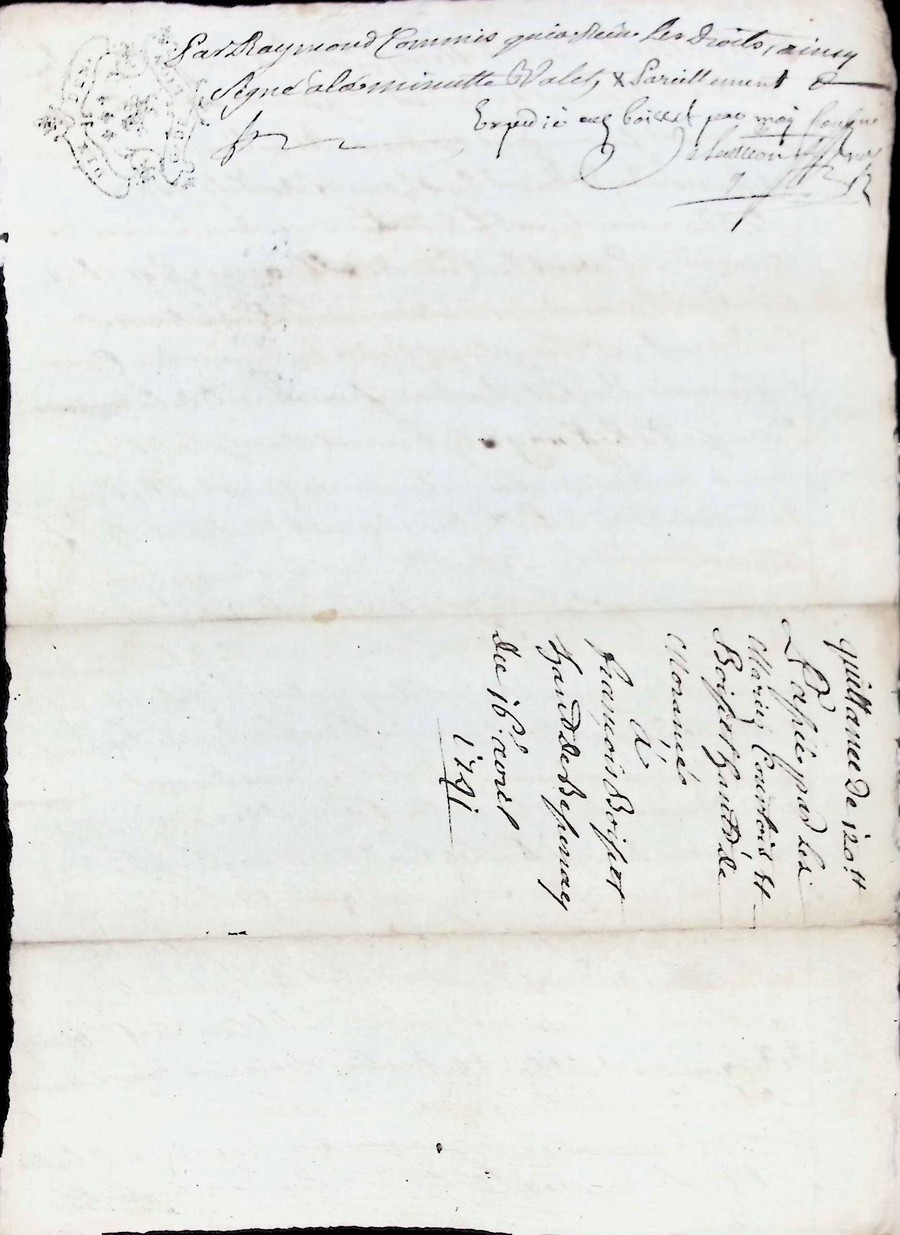 Par Raymond Commis qui a Reçu les Droits, ainsy
Signé a la minutte Valet, & Pareillement &
Expedié aud boisset par moy
quittance de 120 ₶
Passée par les
Mariez Courtois et
Boisset hantd de
Moranés
A
françois Boisset
hantd de Bessenay
du 16e avril
1751